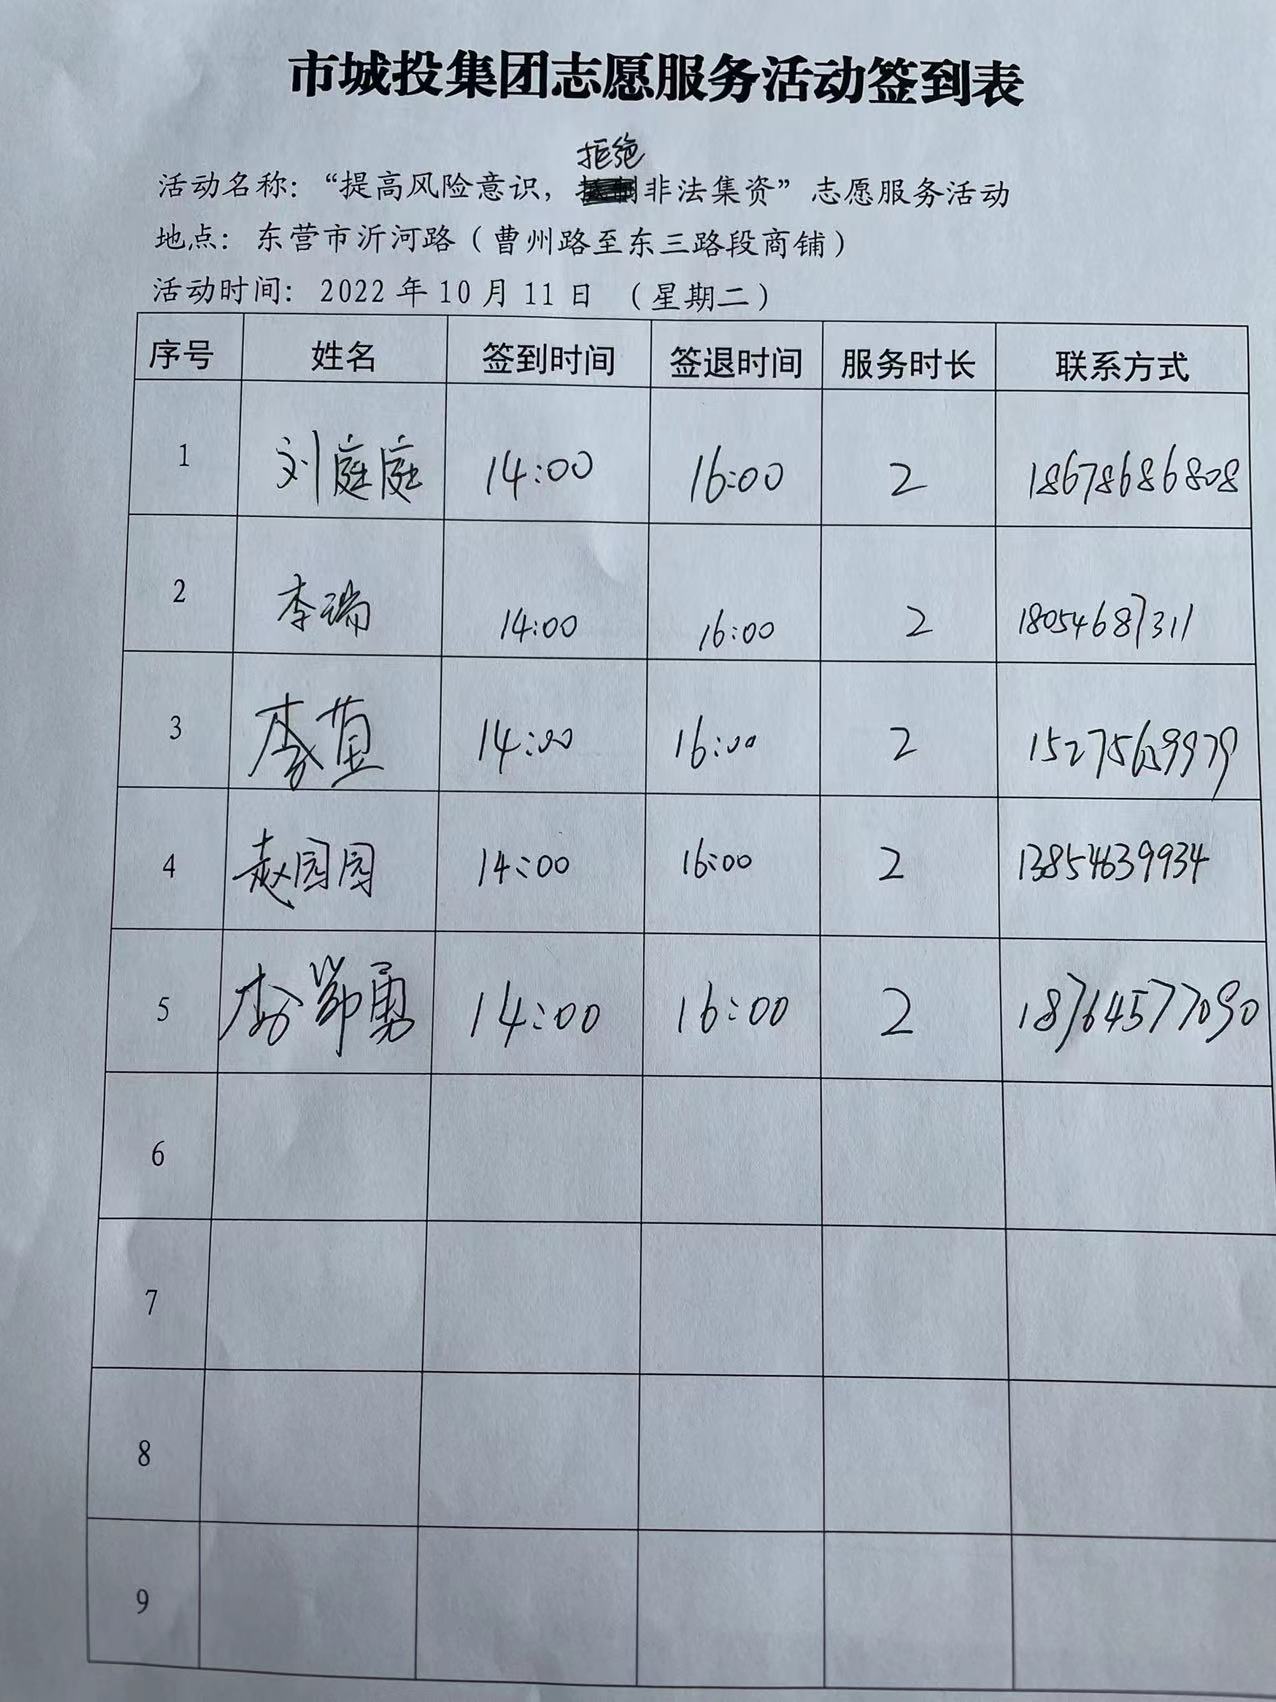 市城投集团志愿服务活动签到表
拒绝
活动名称：“提高风险意识，非法集资”志愿服务活动
地点：东营市沂河路（曹州路至东三路段商铺）
活动时间：2022年10月11日（星期二）
序号 姓名 签到时间 签退时间 服务时长 联系方式
1 刘庭庭 14:00 16:00 2 18678686808
2 李瑞 14:00 16:00 2 18054687311
3 14:00 16:00 2
4 赵园园 14:00 16:00 2 13854639934
5 14:00 16:00 2 18764577090
6
7
8
9